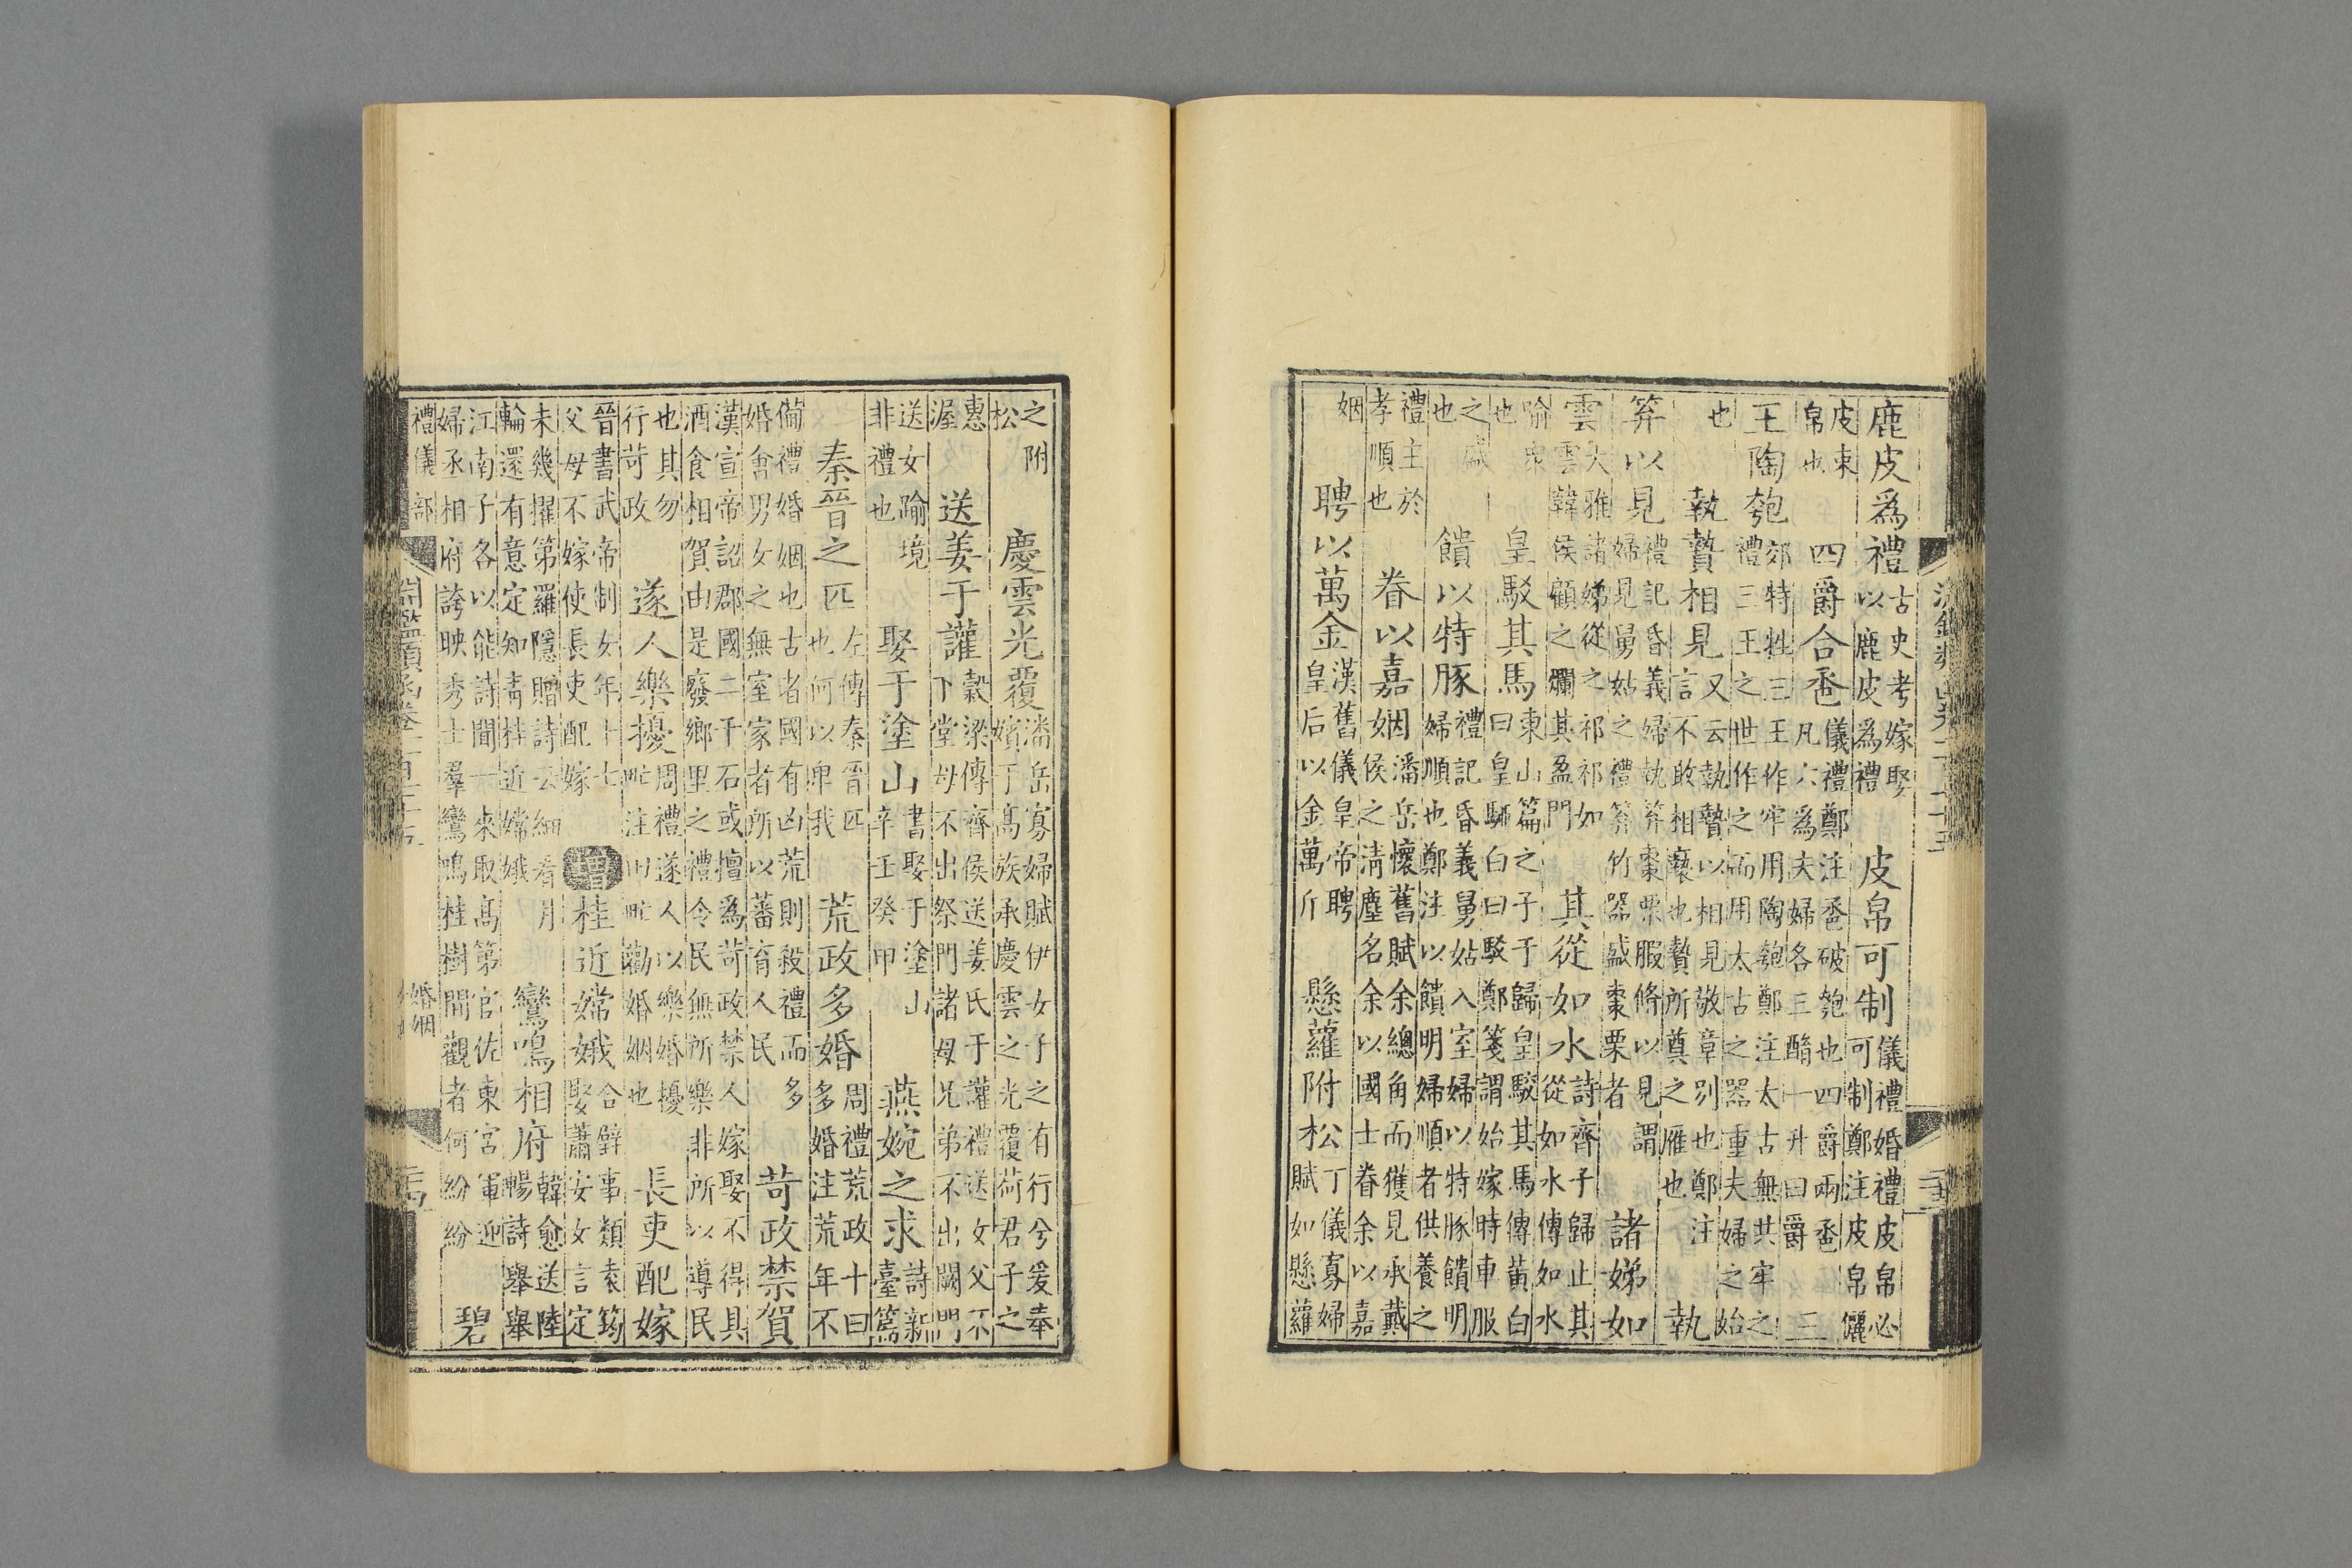 鹿皮爲禮古史考嫁娶以鹿皮爲禮 皮帛可制儀禮婚禮皮帛必可制鄭注皮帛儷
皮束帛也 四爵合卺儀禮鄭注卺破匏也四爵兩卺凡六爲夫婦各三酳十升曰爵 三
王陶匏郊特牲三王作牢用陶匏鄭注太古無共牢之禮三王之世作之而用太古之器重夫婦之始
也 執贄相見又云執贄以相見敬章别也鄭注言不敢相褻也贄所奠之雁也 執
笲以見禮記昏義婦執笲棗栗腶脩以見謂婦見舅姑之禮笲竹器盛棗栗者 諸娣如
雲大雅諸娣從之祁祁如雲韓侯顧之爛其盈門 其從如水詩齊子歸止其從如水傳如水
喻衆也 皇駁其馬東山篇之子于歸皇駁其馬傳黃白曰皇騧白曰駁鄭箋謂始嫁時車服
之盛也 饋以特豚禮記昏義舅姑入室婦以特豚饋明婦順也鄭注以饋明婦順者供養之
禮主於孝順也 眷以嘉姻潘岳懷舊賦余總角而獲見承戴侯之淸塵名余以國士眷余以嘉
姻 聘以萬金漢舊儀皇帝聘皇后以金萬斤 懸蘿附松丁儀寡婦賦如懸蘿
之附松 慶雲光覆潘岳寡婦賦伊女子之有行兮爰奉嬪于高族承慶雲之光覆荷君子之
惠渥 送姜于讙穀梁傳齊侯送姜氏于讙禮送女父不下堂母不出祭門諸母兄弟不出闕門
送女踰境非禮也 娶于塗山書娶于塗山辛壬癸甲 燕婉之求詩新臺篇
秦晉之匹左傳秦晉匹也何以卑我 荒政多婚周禮荒政十曰多婚注荒年不
備禮婚姻也古者國有凶荒則殺禮而多婚會男女之無室家者所以蕃育人民 苛政禁賀
漢宣帝詔郡國二千石或擅爲苛政禁人嫁娶不得具酒食相賀由是廢鄉里之禮令民無所樂非所以導民
也其勿行苛政 遂人樂擾周禮遂人以樂婚擾甿注甿勸婚姻也 長吏配嫁
晉書武帝制女年十七父母不嫁使長吏配嫁 增 桂近嫦娥合璧事類袁筠娶蕭安女言定
未幾擢第羅隱贈詩云細看月輪還有意定知靑桂近嫦娥 鸞鳴相府韓愈送陸暢詩舉舉
江南子各以能詩聞一來取高第官佐東宮軍迎婦丞相府誇映秀士羣鸞鳴桂樹間觀者何紛紛 碧
禮儀部 淵鑑類函卷一百七十五 婚姻